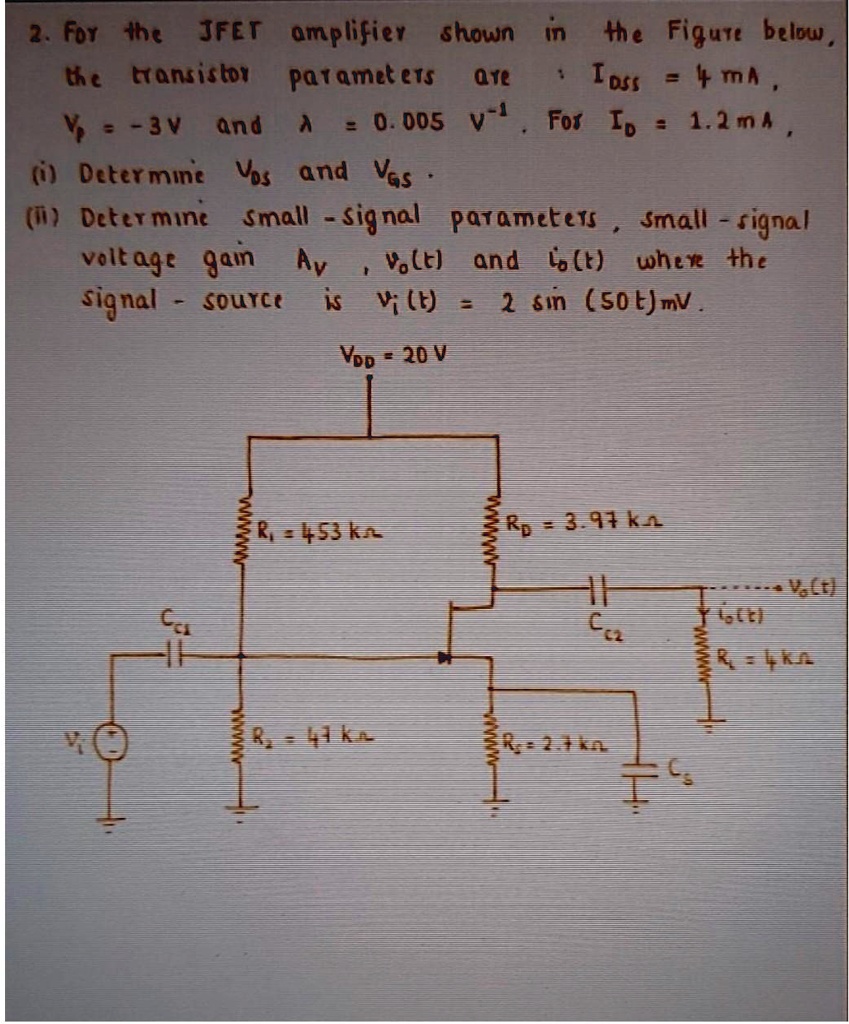 2. For the JFET amplifier shown in the Figure below,
the transistor parameters are : I_DSS = 4 mA,
V_p = -3V and λ = 0.005 V^-1. For I_D = 1.2 mA,
(i) Determine V_DS and V_GS.
(ii) Determine small-signal parameters, small-signal
voltage gain A_v, v_o(t) and i_o(t) where the
signal-source is v_i(t) = 2 sin (50t) mV.
V_DD = 20 V
R_1 = 453 kΩ
R_D = 3.97 kΩ
v_o(t)
C_C1
C_C2
i_o(t)
R_L = 4 kΩ
V_i
+
-
R_2 = 47 kΩ
R_S = 2.7 kΩ
C_S